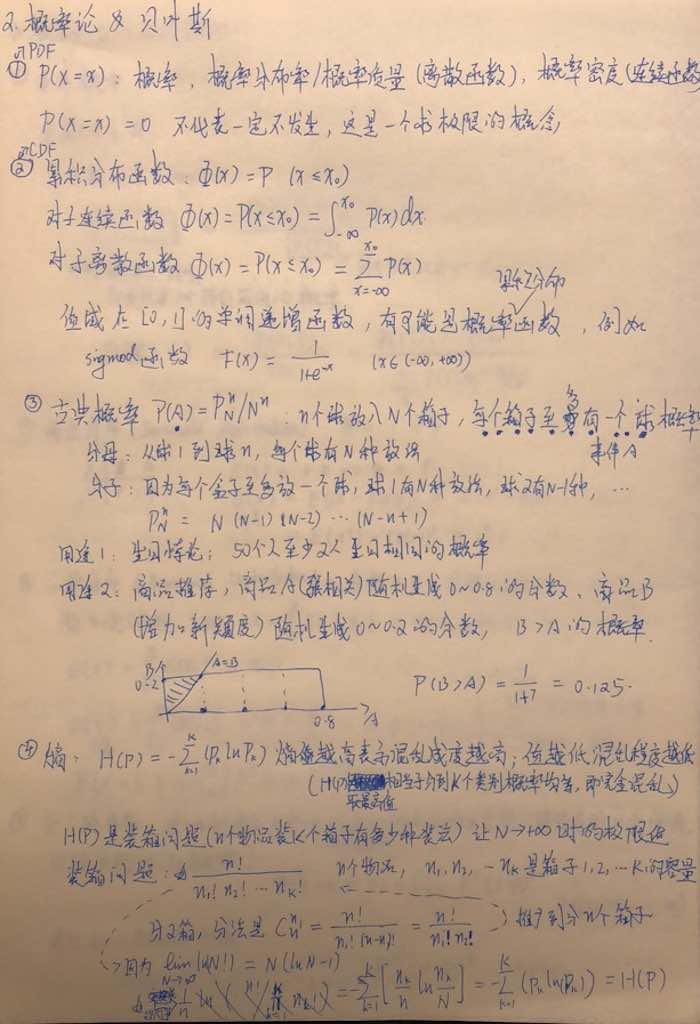 2. 概率论 & 贝叶斯
PDF
① P(X=x): 概率, 概率分布率/概率质量(离散函数), 概率密度(连续函数)
P(X=x)=0 不代表一定不发生, 这是一个求极限的概念
CDF
② 累积分布函数: Φ(x)=P (x≤x₀)
对于连续函数 Φ(x)=P(x≤x₀)=∫_{-∞}^{x₀} P(x)dx
对于离散函数 Φ(x)=P(x≤x₀)=∑_{x=-∞}^{x₀} P(x)
累积分布
值域在[0,1]的单调递增函数, 有可能是概率函数, 例如
sigmod函数 F(x)=1/(1+e^{-x}) (x∈(-∞,+∞))
③ 古典概率 P(A)=P_N^n/N^n: n个球放入N个箱子, 每个箱子至多有一个球概率
事件A
分母: 从球1到球n, 每个球有N种放法
分子: 因为每个盒子至多放一个球, 球1有N种放法, 球2有N-1种, …
P_N^n = N (N-1) (N-2) … (N-n+1)
用途1: 生日悖论; 50个人至少2人生日相同的概率
用途2: 商品推荐, 商品A(强相关)随机生成0~0.8的分数、商品B
(增加新颖度)随机生成0~0.2的分数, B>A的概率.
B A=B
0.2
0.8 A
P(B>A)=1/(1+7)=0.125.
④ 熵: H(P)=-∑_{k=1}^{K}(Pₖ ln Pₖ) 熵值越高表示混乱成度越高; 值越低混乱程度越低
(H(P)取最高值相当于分到K个类别概率均等, 即完全混乱)
H(P)是装箱问题(n个物品装K个箱子有多少种装法)让N→+∞时的极限值
装箱问题: n!/(n₁! n₂! … n_K!) n个物品, n₁, n₂, … n_K是箱子1, 2, … K的容量
分2箱, 分法是 C_n^{n₁} = n!/(n₁!(n-n₁)!) = n!/(n₁! n₂!) 推广到分n个箱子
因为 lim_{N→∞} lnN! = N(lnN-1)
= ∑_{k=1}^{K}[nₖ/n ln nₖ/N] = -∑_{k=1}^{K}(Pₖ ln(Pₖ)) = H(P)